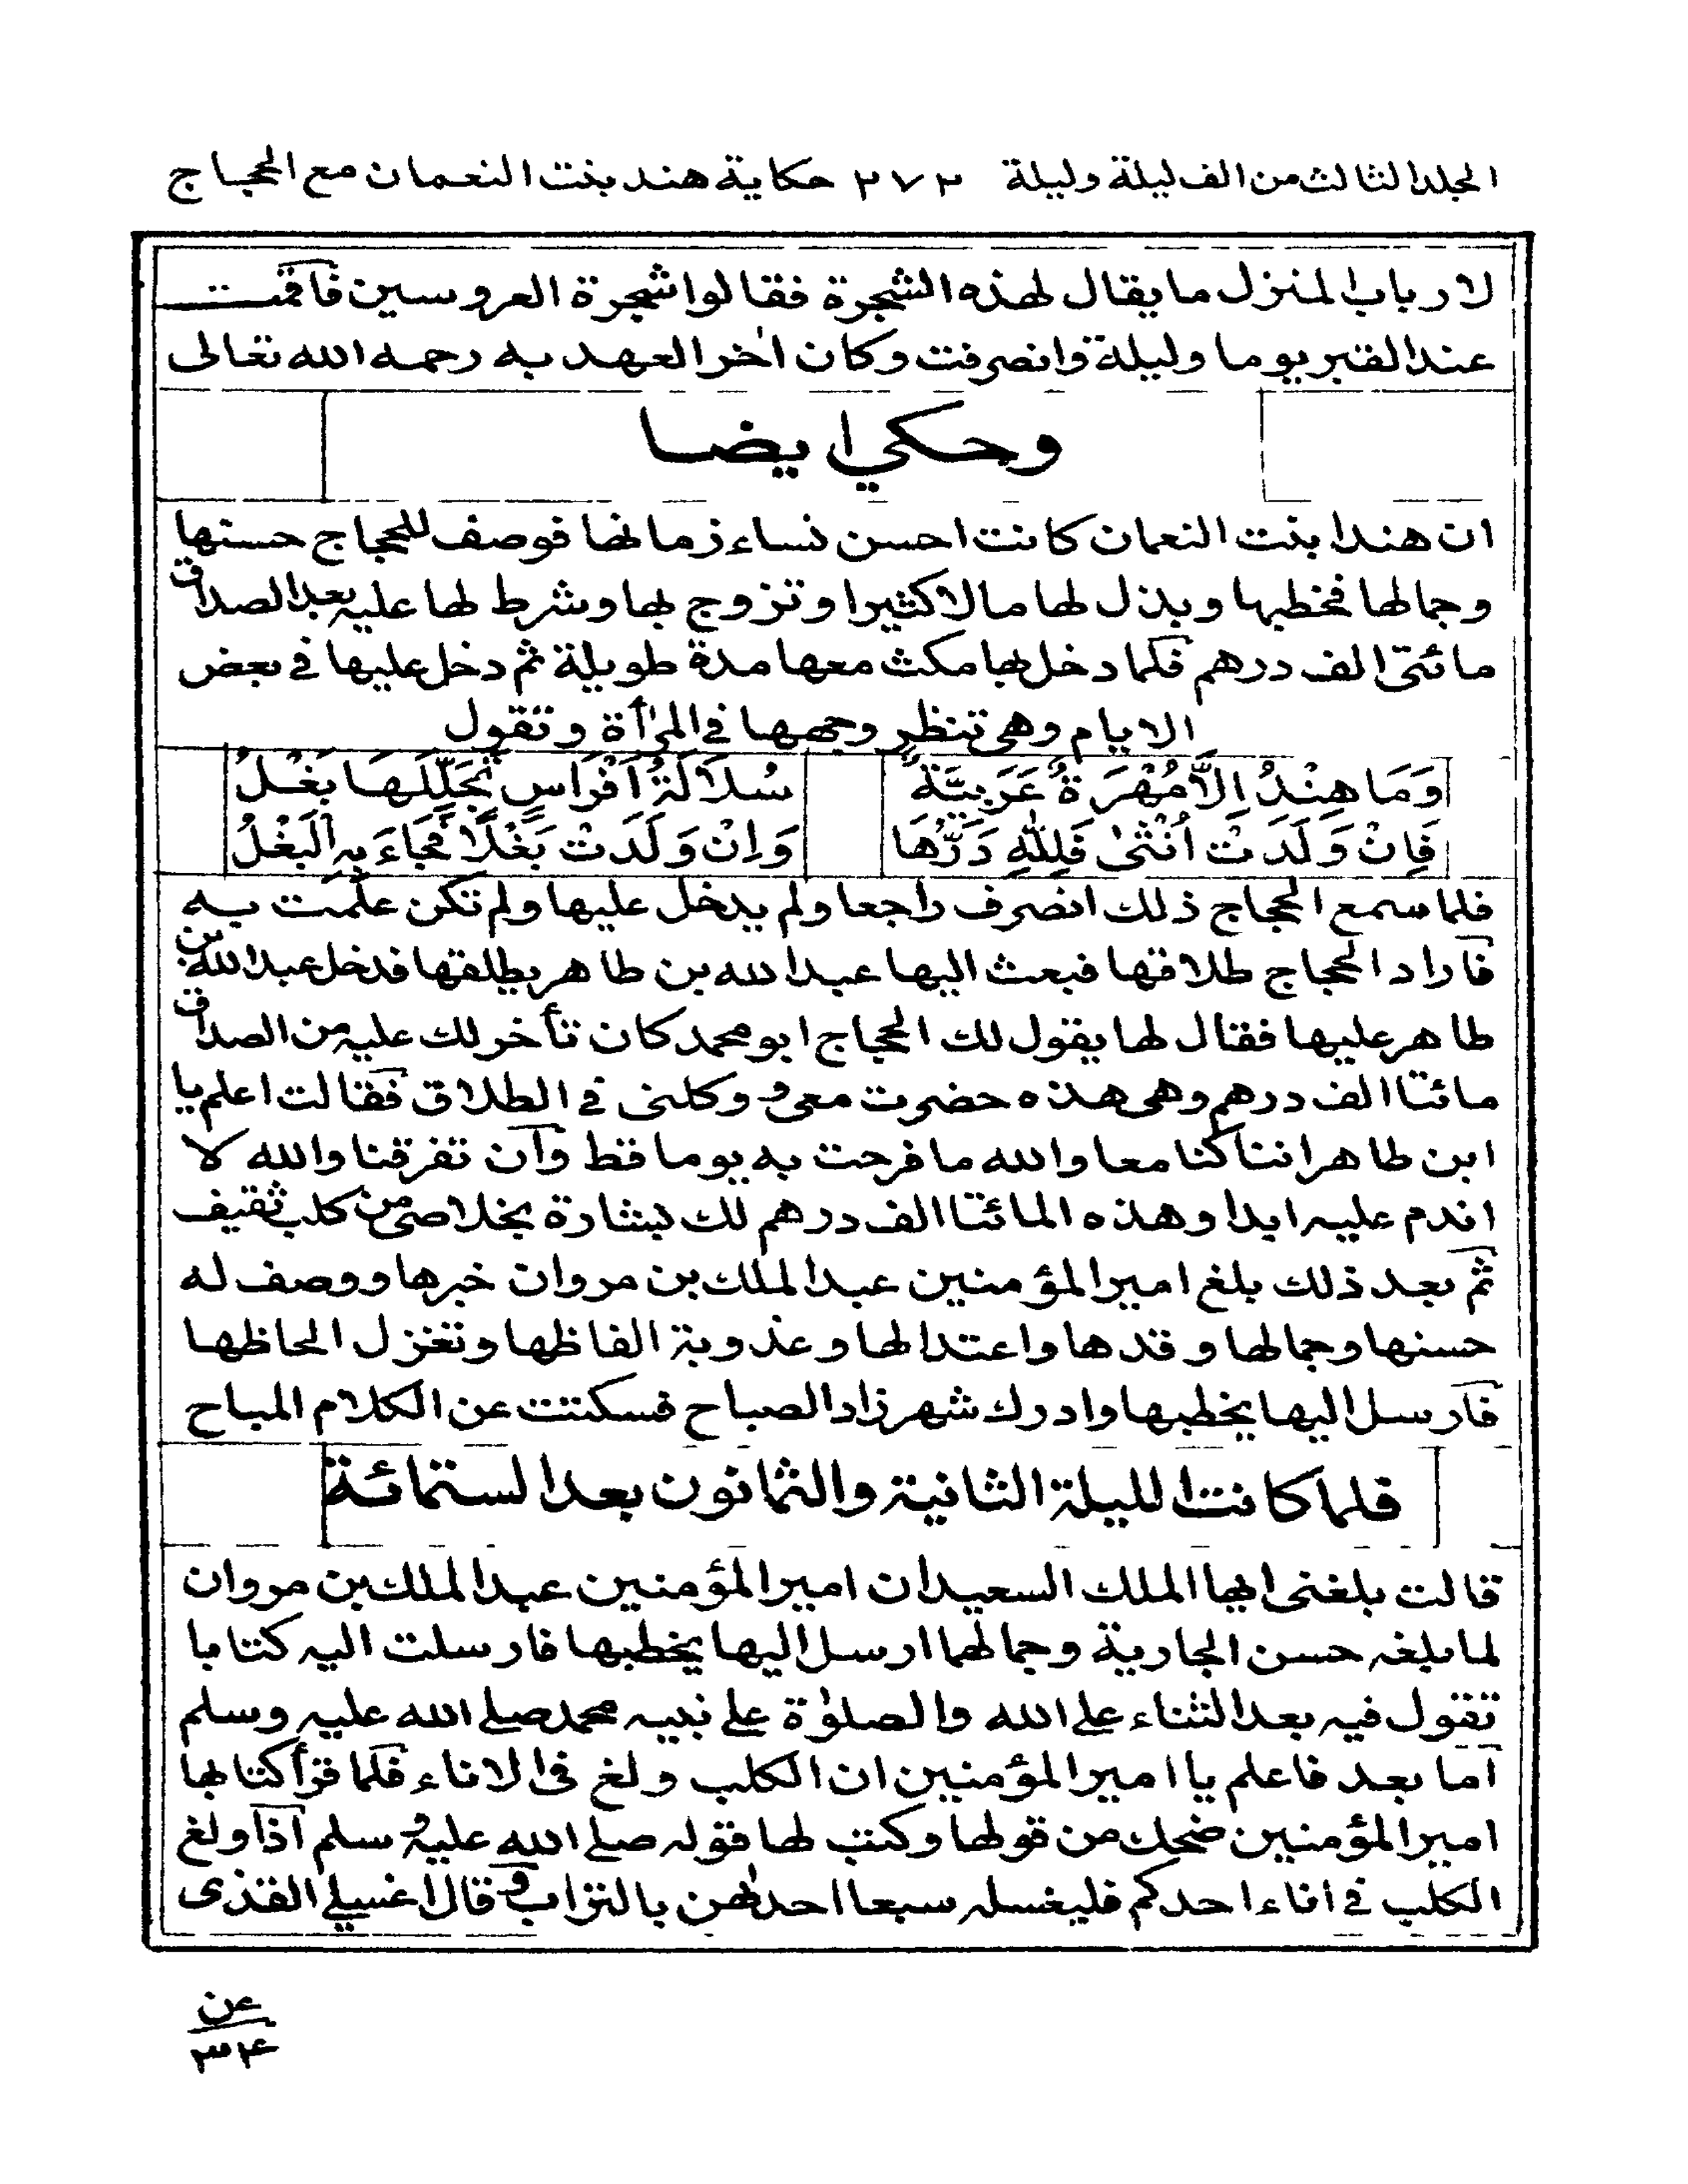 المجلد الثالث من الف ليلة وليلة ٢٧٢ حكاية هند بنت النعمان مع الحجاج
لارباب المنزل ما يقال لهذه الشجرة فقالوا شجرة العروسين فاقمت
عند القبر يوما وليلة وانصرفت وكان اٰخر العهد به رحمه الله تعالى
وحكي ايضا
ان هندا بنت النعمان كانت احسن نساء زمانها فوصف للحجاج حسنها
وجمالها فخطبها وبذل لها مالا كثيرا وتزوج بها وشرط لها عليه بعد الصداق
مائتى الف درهم فلما دخل بها مكث معها مدة طويلة ثم دخل عليها في بعض
الايام وهى تنظر وجهها في المرٰأة وتقول
وَمَا هِنْدُ اِلَّا مُهْرَةٌ عَرَبِيَّةٌ سُلَالَةُ اَفْرَاسٍ تَجَلَّلَهَا بَغْلُ
فَاِنْ وَلَدَتْ اُنْثىٰ فَلِلّٰهِ دَرُّهَا وَاِنْ وَلَدَتْ بَغْلًا فَجَاءَ بِهِ الْبَغْلُ
فلما سمع الحجاج ذلك انصرف راجعا ولم يدخل عليها ولم تكن علمت به
فاراد الحجاج طلاقها فبعث اليها عبد الله بن طاهر يطلقها فدخل عبد الله بن
طاهر عليها فقال لها يقول لك الحجاج ابو محمد كان تأخر لك عليه من الصداق
مائتا الف درهم وهى هذه حضرت معى و وكلنى في الطلاق فقالت اعلم يا
ابن طاهر اننا كنا معا والله ما فرحت به يوما قط وان تفرقنا والله لا
اندم عليه ابدا وهذه المائتا الف درهم لك بشارة بخلاصى من كلب ثقيف
ثم بعد ذلك بلغ امير المؤمنين عبد الملك بن مروان خبرها ووصف له
حسنها وجمالها وقدها واعتدالها وعذوبة الفاظها وتغزل الحاظها
فارسل اليها يخطبها وادرك شهرزاد الصباح فسكتت عن الكلام المباح
فلما كانت الليلة الثانية والثمانون بعد الستمائة
قالت بلغنى ايها الملك السعيد ان امير المؤمنين عبد الملك بن مروان
لما بلغه حسن الجارية وجمالها ارسل اليها يخطبها فارسلت اليه كتابا
تقول فيه بعد الثناء على الله والصلوٰة على نبيه محمد صلى الله عليه وسلم
اما بعد فاعلم يا امير المؤمنين ان الكلب ولغ فى الاناء فلما قرأ كتابها
امير المؤمنين ضحك من قولها وكتب لها قوله صلى الله عليه وسلم اذا ولغ
الكلب في اناء احدكم فليغسله سبعا احدٰهن بالتراب وقال اغسيلى القذى
عن
٣٤